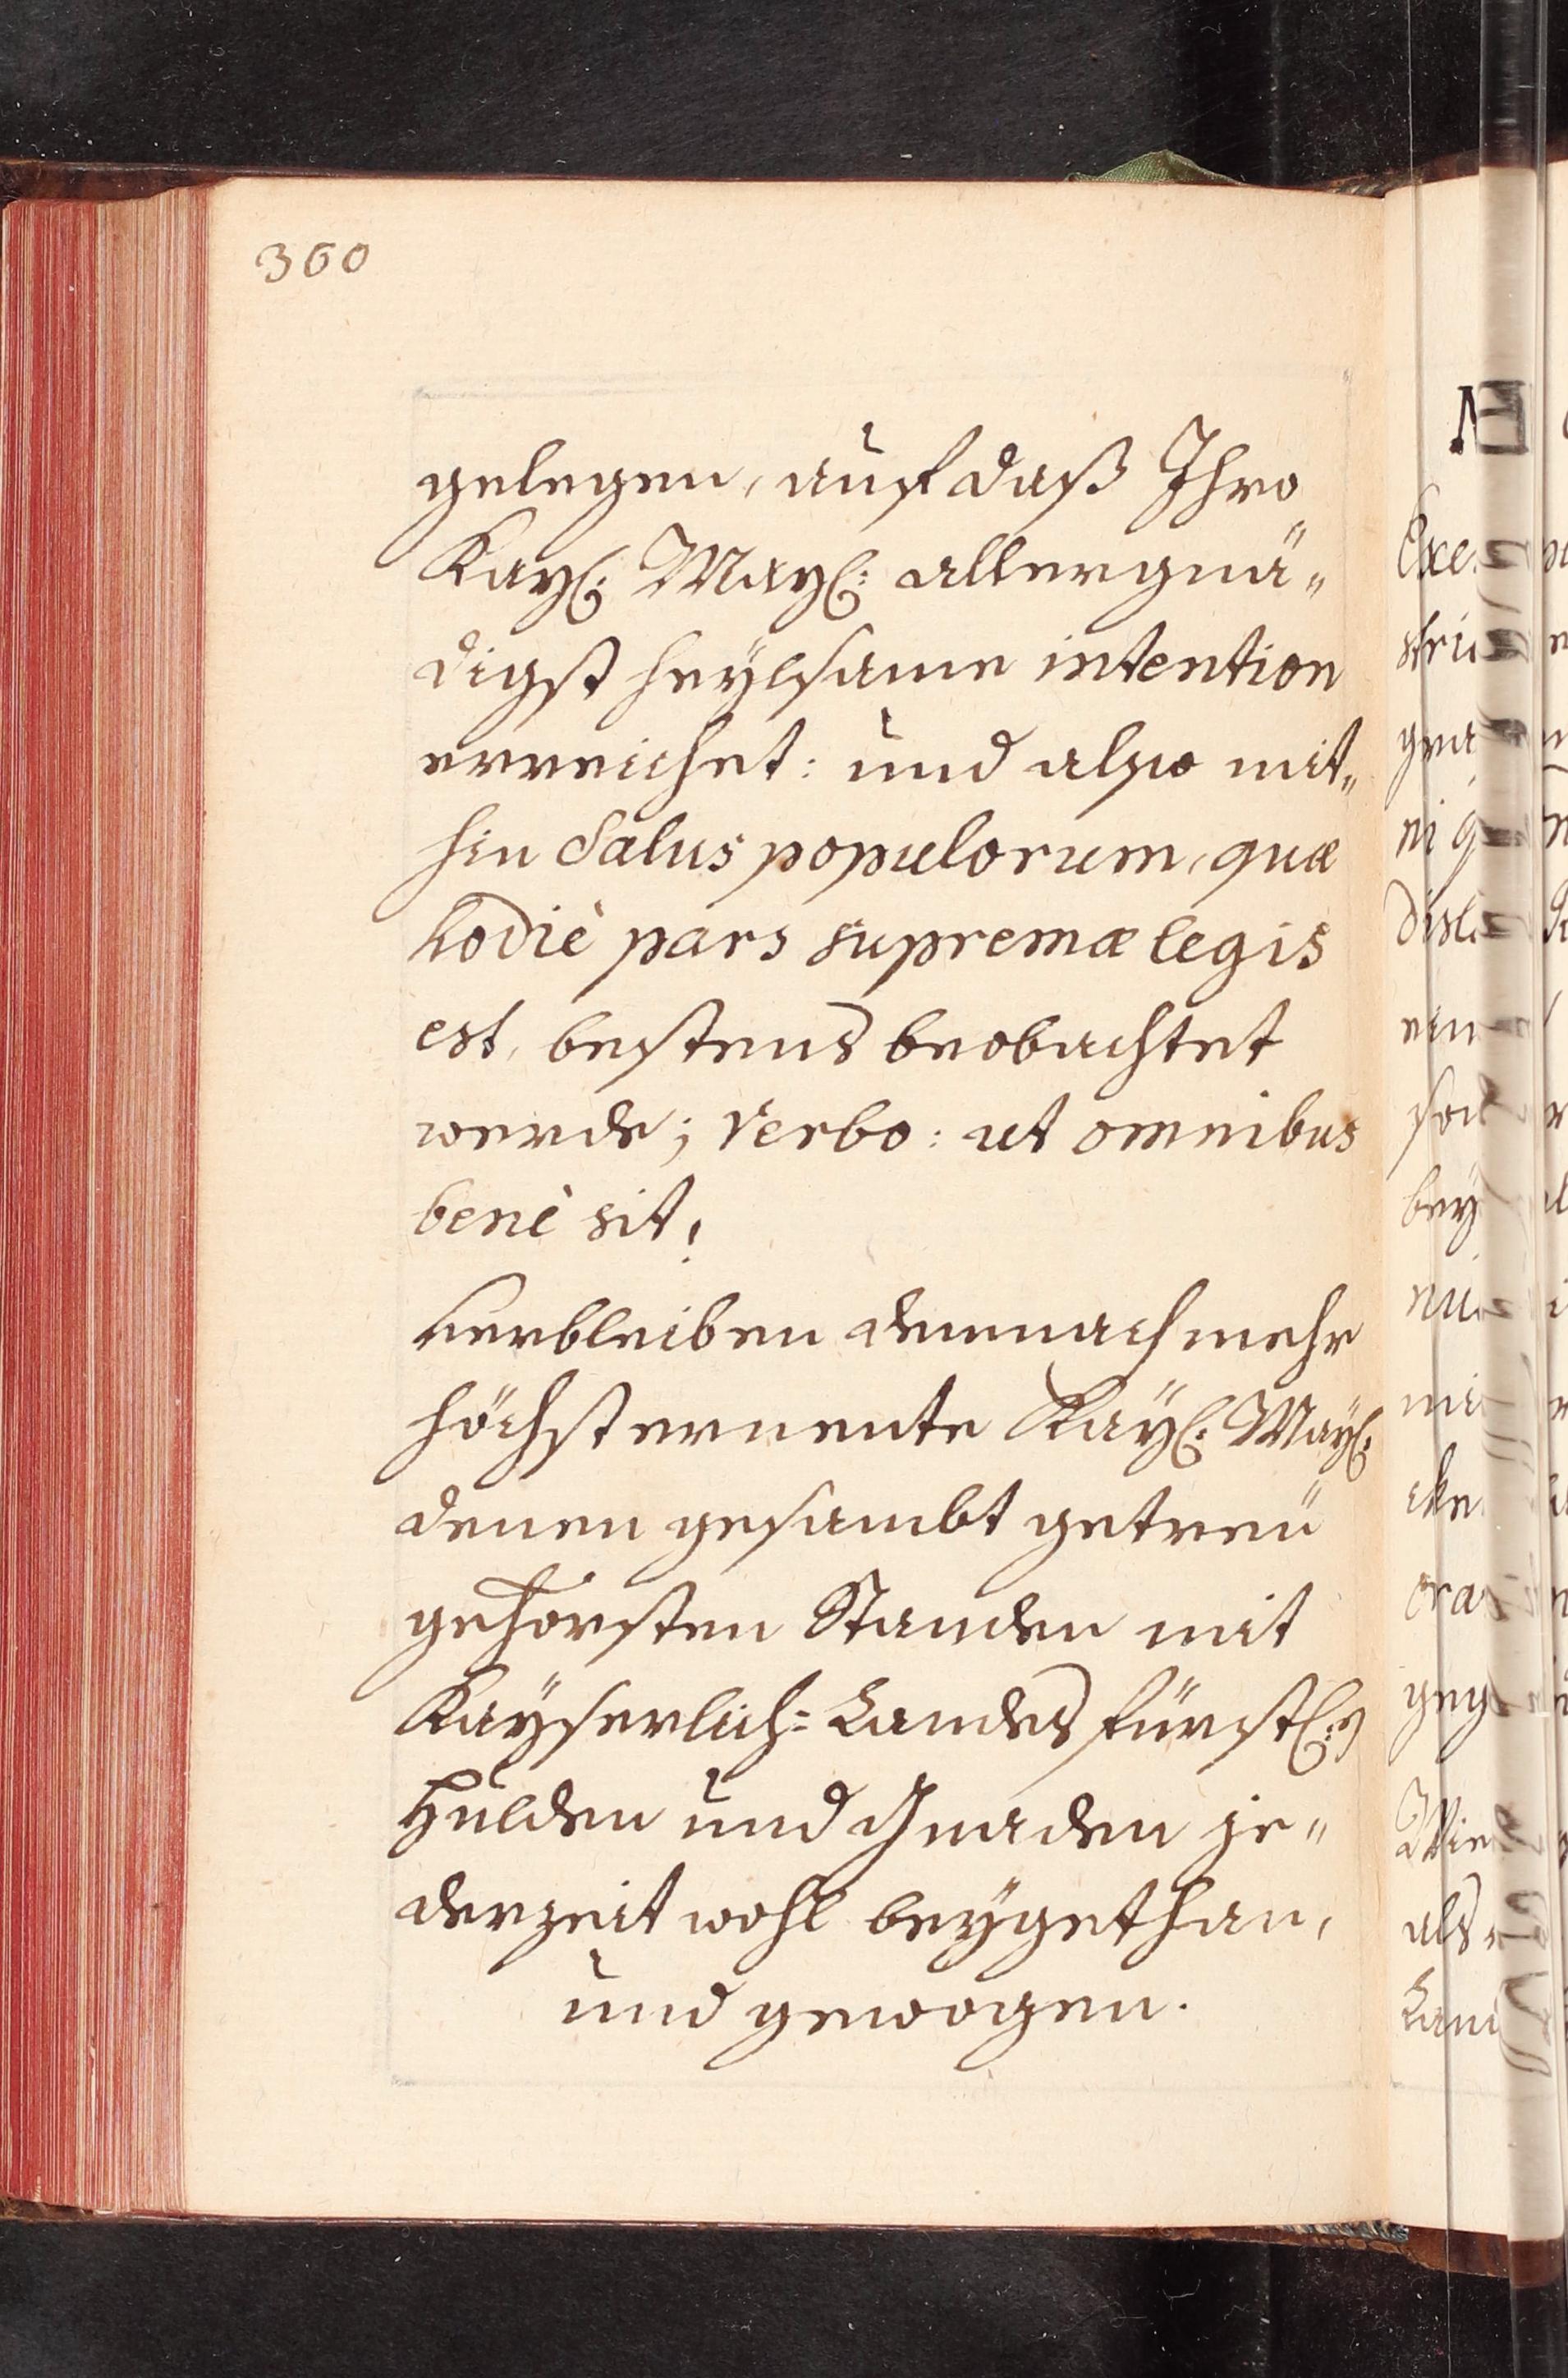 360
gelegen, auf daß Ihro
Kay: May: allergnä„
digst heÿlsame intention
erreichet: und also mit„
hin Salus populorum, quæ
hodiè pars supremæ legis
est, bestens beobachtet
werde; Verbo: ut omnibus
benè sit!
Verbleiben demnach mehr
höchst ernente Kaÿ: Maÿ:
denen gesambt getreü
gehorsten Standen mit
Kaÿserlich= Landes fürstl:n
Hulden und Gnaden je„
derzeit wohl beÿgethan,
und gewogen.